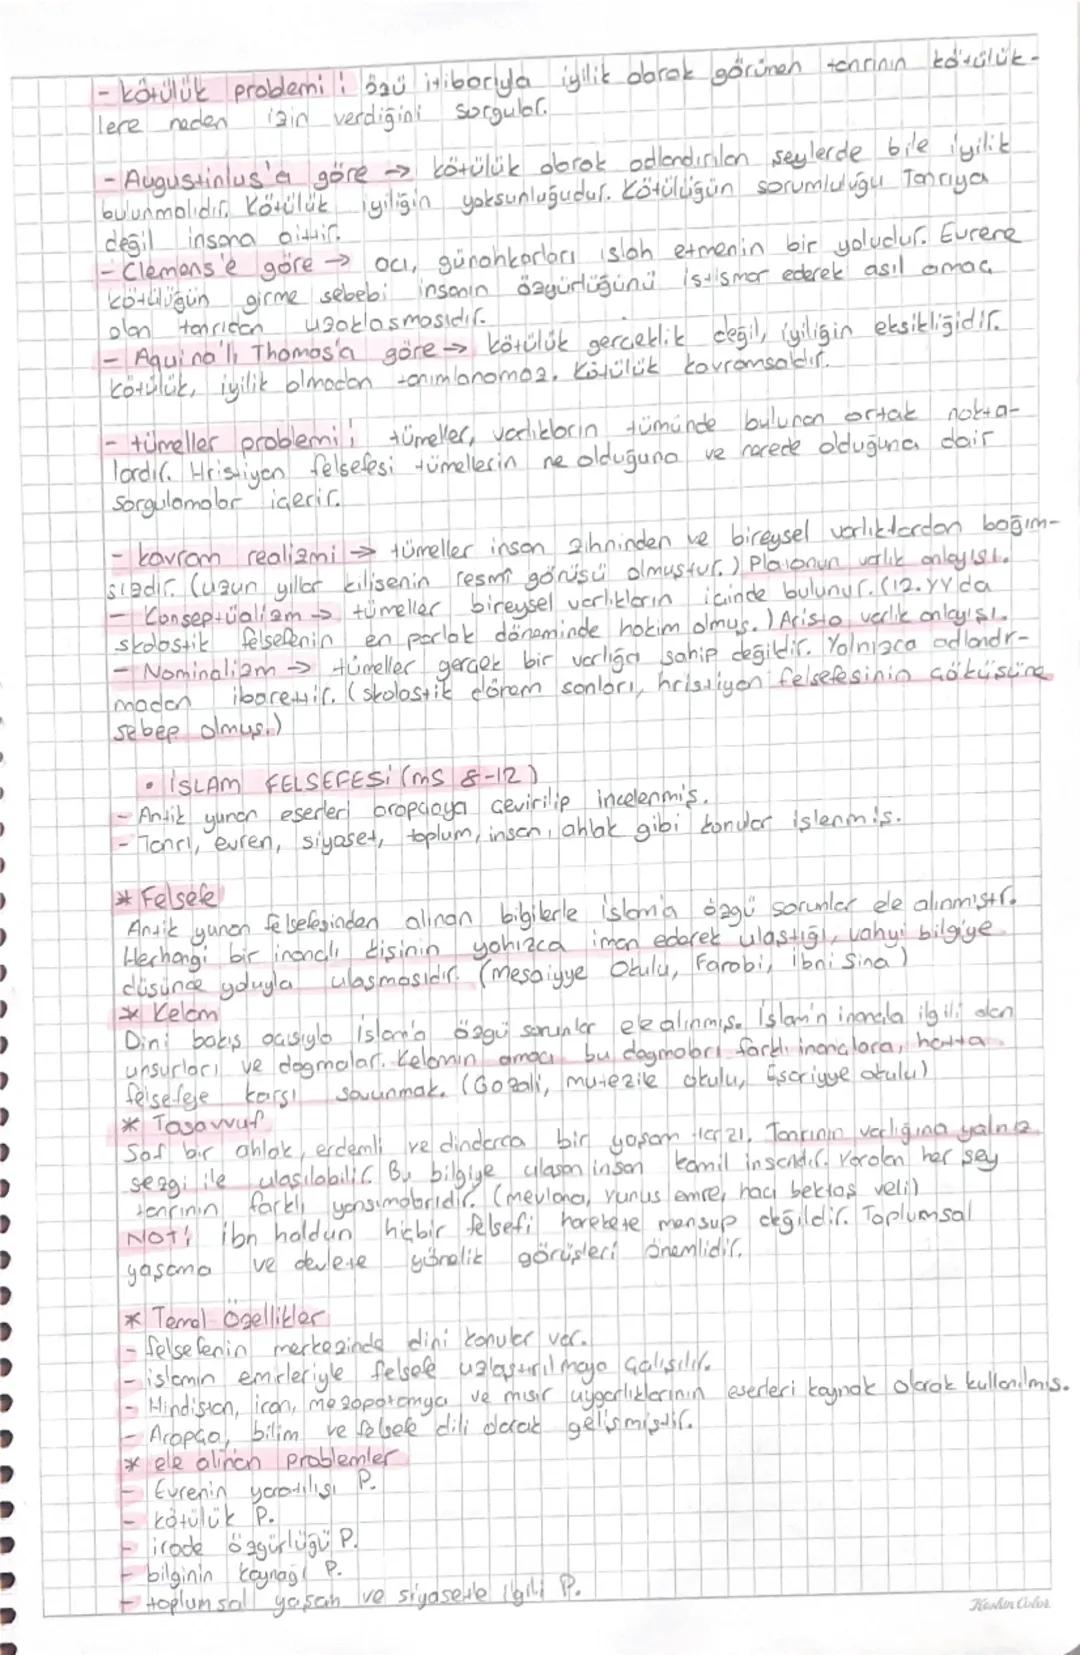 - kötülük problemi : özü itibarıyla iyilik olarak görünen tanrının kötülük-
lere neden izin verdiğini sorgular.
- Augustinius'a göre → kötülük olarak adlandırılan şeylerde bile iyilik
bulunmalıdır. Kötülük iyiliğin yoksunluğudur. Kötülüğün sorumluluğu Tanrıya
değil insana aittir.
- Clemens'e göre → acı, günahkarları ıslah etmenin bir yoludur. Evrene
kötülüğün girme sebebi insanın özgürlüğünü istismar ederek asıl amacı
olan tanrıdan uzaklaşmasıdır.
- Aquino'lı Thomas'a göre → kötülük gerçeklik değil, iyiliğin eksikliğidir.
Kötülük, iyilik olmadan tanımlanamaz. Kötülük kavramsaldır.
- tümeller problemi : tümeller, varlıkların tümünde bulunan ortak nokta-
lardır. Hristiyan felsefesi tümellerin ne olduğuna ve nerede olduğuna dair
sorgulamalar içerir.
- kavram realizmi → tümeller insan zihninden ve bireysel varlıklardan bağım-
sızdır. (uzun yıllar kilisenin resmî görüşü olmuştur.) Platonun varlık anlayışı.
- Konseptüalizm → tümeller bireysel varlıkların içinde bulunur. (12. YY da
skolostik felsefenin en parlak döneminde hakim olmuş.) Aristo varlık anlayışı.
- Nominalizm → tümeller gerçek bir varlığa sahip değildir. Yalnızca adlandır-
madan ibarettir. (skolastik dönem sonları, hristiyan felsefesinin çöküşüne
sebep olmuş.)
• İSLAM FELSEFESİ (MS 8-12)
- Antik yunan eserleri arapçaya çevirilip incelenmiş.
- Tanrı, evren, siyaset, toplum, insan, ahlak gibi konular işlenmiş.
* Felsefe
Antik yunan felsefesinden alınan bilgilerle islam'a özgü sorunlar ele alınmıştır.
Herhangi bir inançlı kişinin yalnızca iman ederek ulaştığı, vahyi bilgiye
düşünce yoluyla ulaşmasıdır. (meşaiyye Okulu, Farabi, ibni Sina)
* Kelam
Dini bakış açısıyla islam'a özgü sorunlar ele alınmış. İslam'ın inançla ilgili olan
unsurları ve dogmalar. Kelamın amacı bu dogmaları farklı inançlara, hatta
felsefeye karşı savunmak. (Gazali, mutezile okulu, Eşariyye okulu)
* Tasavvuf
Saf bir ahlak, erdemli ve dindarca bir yaşam tarzı. Tanrının varlığına yalnız
sezgi ile ulaşılabilir. Bu bilgiye ulaşan insan kamil insandır. Varolan her şey
tanrının farklı yansımalarıdır. (mevlana, yunus emre, hacı bektaş veli)
NOT: ibn haldun hiçbir felsefi harekete mensup değildir. Toplumsal
yaşama ve devlete yönelik görüşleri önemlidir.
* Temel Özellikler
- felsefenin merkezinde dini konular var.
- islamın emirleriyle felsefe uzlaştırılmaya çalışılır.
- Hindistan, iran, mezopotamya ve mısır uygarlıklarının eserleri kaynak olarak kullanılmış.
- Arapça, bilim ve felsefe dili olarak gelişmiştir.
* ele alınan problemler
- Evrenin yaratılışı P.
- kötülük P.
- irade özgürlüğü P.
- bilginin kaynağı P.
- toplumsal yaşam ve siyasetle ilgili P.
Keskin Color